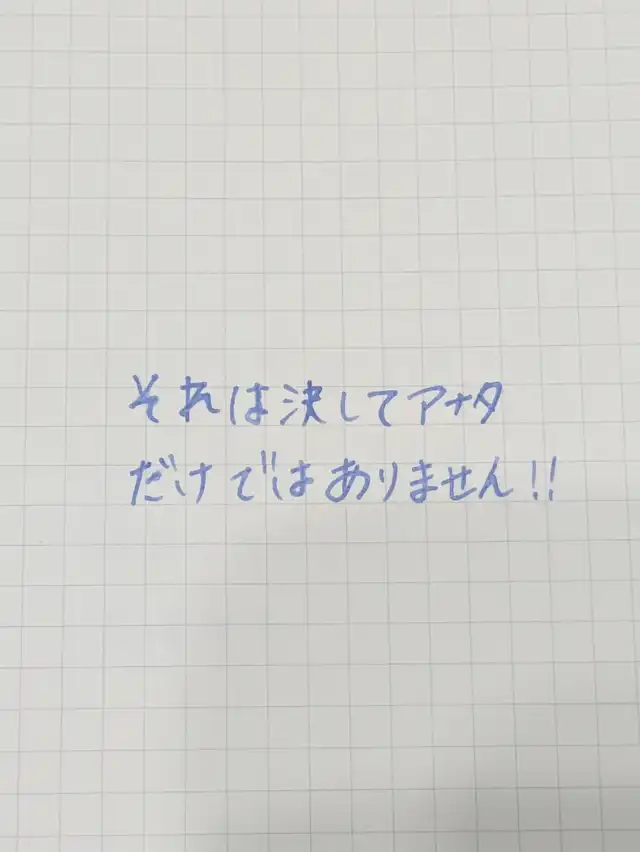 それは決してアナタ
だけではありません!!